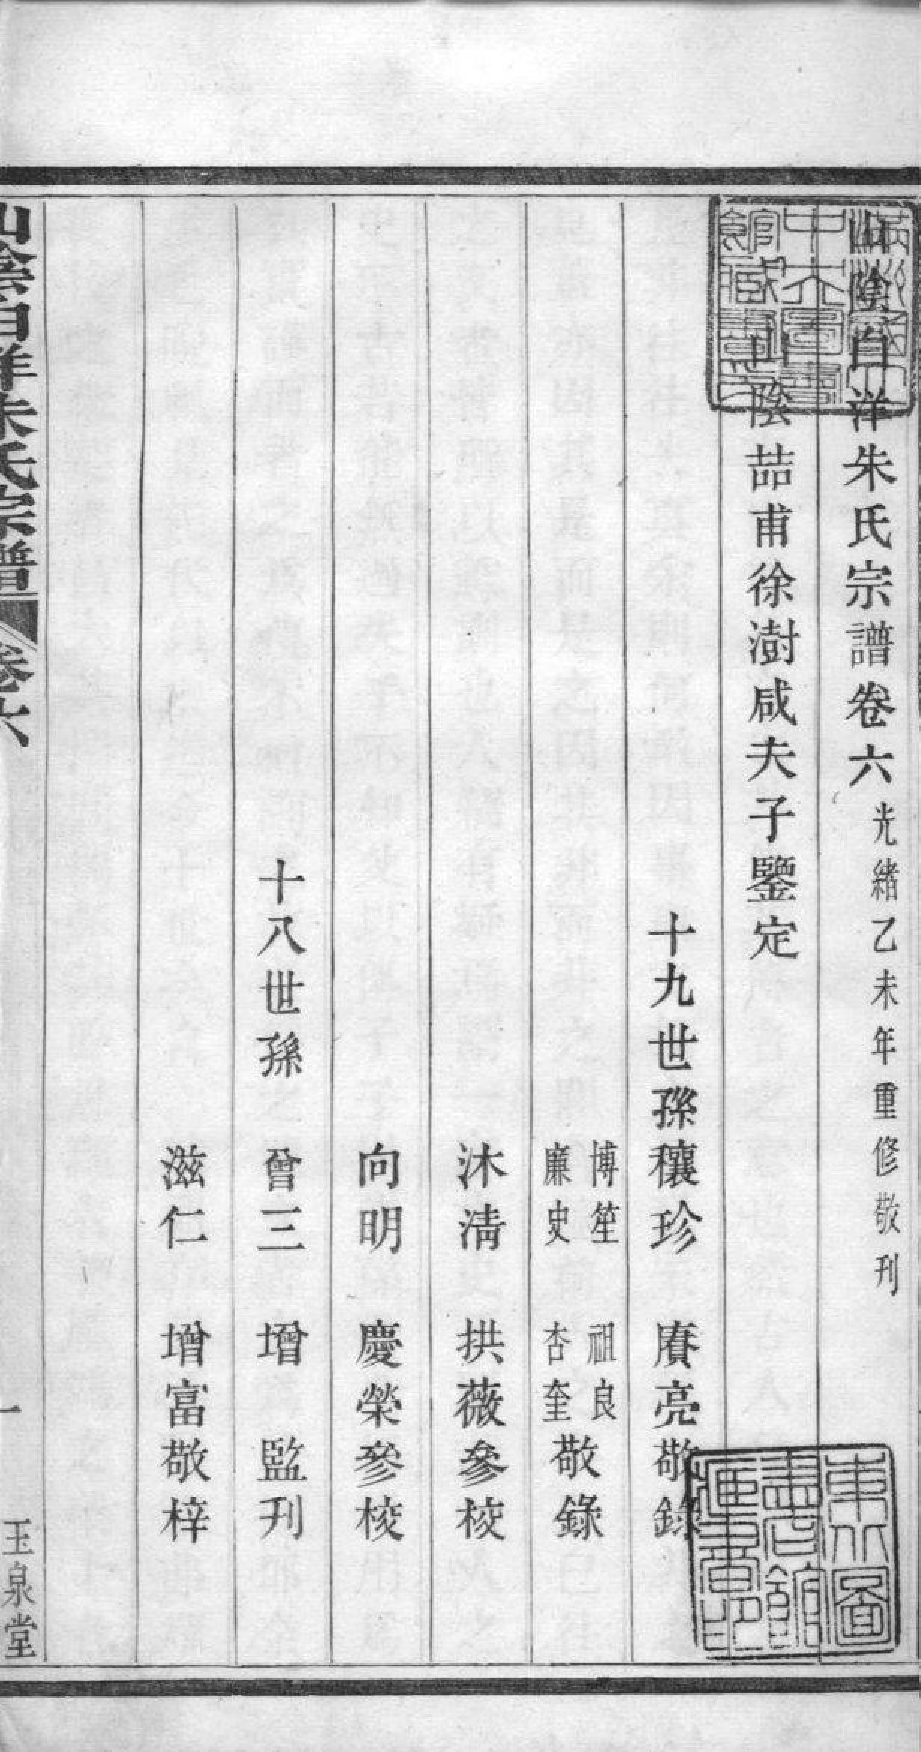 山陰白洋朱氏宗譜卷六 光緒乙未年重修敬刊
山陰喆甫徐澍咸夫子鑒定
十九世孫 穰珍 賡亮敬錄
博笙 祖良
廉史 杏奎 敬錄
沐淸 拱薇參校
向明 慶榮參校
十八世孫 曾三 增 監刋
滋仁 增富敬梓
山陰白洋朱氏宗譜 卷六 一 玉泉堂